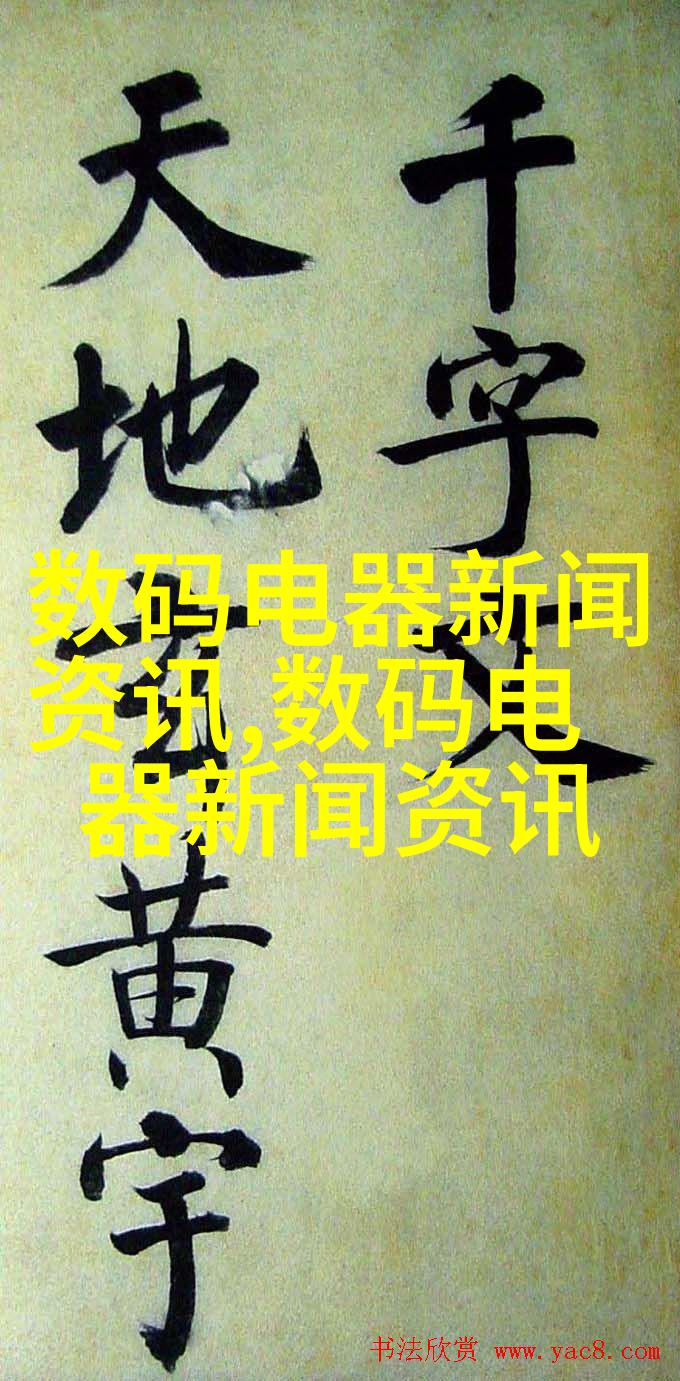 千字文
天地玄黄宇
数码电器新闻
资讯,数码电
器新闻资讯
书法欣赏 www.yac8.com